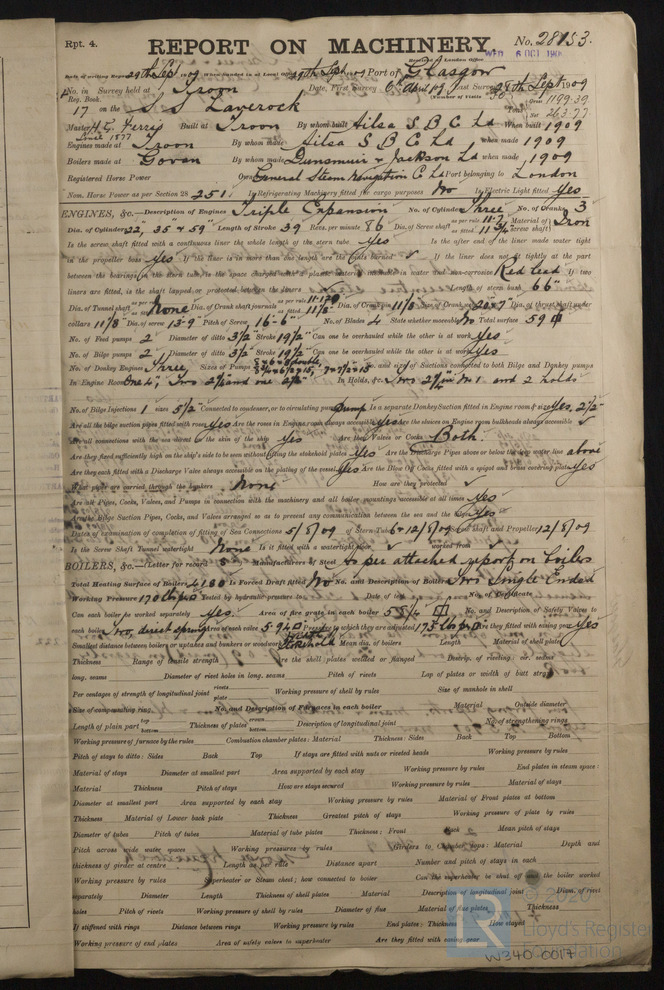 Rpt. 4.
REPORT ON MACHINERY
No. 28153.
WED 6 OCT 1909
29th Sept 1909 Port of Glasgow
No. in Survey held at Troon Date, First Survey 6th April 09 Last Survey 28th Sept 1909
Reg. Book.
17 on the S.S. Laverock
Master Built at Troon By whom built Ailsa S B C Ld When built 1909
Engines made at Troon By whom made Ailsa S B C Ld when made 1909
Boilers made at Govan By whom made Dunsmuir & Jackson Ld when made 1909
Registered Horse Power Owners General Steam Navigation C Ld Port belonging to London
Nom. Horse Power as per Section 28 251 Is Refrigerating Machinery fitted for cargo purposes No Is Electric Light fitted Yes
ENGINES, &c.—Description of Engines Triple Expansion No. of Cylinders Three No. of Cranks 3
Dia. of Cylinders 22, 35 & 59" Length of Stroke 39 Revs. per minute 86 Dia. of Screw shaft as per rule 11.7 as fitted 11 3/4 Material of screw shaft Iron
Is the screw shaft fitted with a continuous liner the whole length of the stern tube Yes Is the after end of the liner made water tight
in the propeller boss Yes If the liner is in more than one length are the joints burned ✓ If the liner does not fit tightly at the part
between the bearings in the stern tube, is the space charged with a plastic material insoluble in water and non-corrosive Red Lead If two
liners are fitted, is the shaft lapped or protected between the liners Length of stern bush 66"
Dia. of Tunnel shaft None Dia. of Crank shaft journals as fitted 11 1/8" Dia. of Crank pin 11 1/8 Size of Crank webs 20 x 7 Dia. of thrust shaft under
collars 11 1/8" Dia. of screw 13-9" Pitch of Screw 16-6" No. of Blades 4 State whether moveable No Total surface 59
No. of Feed pumps 2 Diameter of ditto 3 1/2 Stroke 19 1/2" Can one be overhauled while the other is at work Yes
No. of Bilge pumps 2 Diameter of ditto 3 1/2 Stroke 19 1/2 Can one be overhauled while the other is at work Yes
No. of Donkey Engines Three Sizes of Pumps No. and size of Suctions connected to both Bilge and Donkey pumps
In Engine Room In Holds, &c. Two 2 3/4" No 1 and 2 holds
No. of Bilge Injections 1 sizes 5 1/2" Connected to condenser, or to circulating pump Pump Is a separate Donkey Suction fitted in Engine room & size Yes, 2 1/2"
Are all the bilge suction pipes fitted with roses Yes Are the roses in Engine room always accessible Yes Are the sluices on Engine room bulkheads always accessible ✓
Are all connections with the sea direct on the skin of the ship Yes Are they Valves or Cocks Both.
Are they fixed sufficiently high on the ship's side to be seen without lifting the stokehold plates Yes Are the Discharge Pipes above or below the deep water line above
Are they each fitted with a Discharge Valve always accessible on the plating of the vessel Yes Are the Blow Off Cocks fitted with a spigot and brass covering plate Yes
What pipes are carried through the bunkers None How are they protected ✓
Are all Pipes, Cocks, Valves, and Pumps in connection with the machinery and all boiler mountings accessible at all times Yes
Are the Bilge Suction Pipes, Cocks, and Valves arranged so as to prevent any communication between the sea and the bilges Yes
Dates of examination of completion of fitting of Sea Connections 5/8/09 of Stern Tube 6 & 12/8/09 Screw shaft and Propeller 12/8/09
Is the Screw Shaft Tunnel watertight None Is it fitted with a watertight door ✓ worked from ✓
BOILERS, &c.—(Letter for record S) Manufacturers of Steel As per attached report on boilers
Total Heating Surface of Boilers 4180 Is Forced Draft fitted No No. and Description of Boilers Two Single Ended
Working Pressure 170 lbs Tested by hydraulic pressure to Date of test No. of Certificate
Can each boiler be worked separately Yes. Area of fire grate in each boiler No. and Description of Safety Valves to
each boiler Two, direct spring Area of each valve 5.940 Pressure to which they are adjusted 175 lbs Are they fitted with easing gear Yes
Smallest distance between boilers or uptakes and bunkers or woodwork Mean dia. of boilers Length Material of shell plates
Thickness Range of tensile strength Are the shell plates welded or flanged Descrip. of riveting: cir. seams
long. seams Diameter of rivet holes in long. seams Pitch of rivets Lap of plates or width of butt straps
Per centages of strength of longitudinal joint rivets plates Working pressure of shell by rules Size of manhole in shell
Size of compensating ring No. and Description of Furnaces in each boiler Material Outside diameter
Length of plain part top bottom Thickness of plates crown bottom Description of longitudinal joint No. of strengthening rings
Working pressure of furnace by the rules Combustion chamber plates: Material Thickness: Sides Back Top Bottom
Pitch of stays to ditto: Sides Back Top If stays are fitted with nuts or riveted heads Working pressure by rules
Material of stays Diameter at smallest part Area supported by each stay Working pressure by rules End plates in steam space:
Material Thickness Pitch of stays How are stays secured Working pressure by rules Material of stays
Diameter at smallest part Area supported by each stay Working pressure by rules Material of Front plates at bottom
Thickness Material of Lower back plate Thickness Greatest pitch of stays Working pressure of plate by rules
Diameter of tubes Pitch of tubes Material of tube plates Thickness: Front Back Mean pitch of stays
Pitch across wide water spaces Working pressures by rules Girders to Chamber tops: Material Depth and
thickness of girder at centre Length as per rule Distance apart Number and pitch of stays in each
Working pressure by rules Superheater or Steam chest; how connected to boiler Can the superheater be shut off and the boiler worked
separately Diameter Length Thickness of shell plates Material Description of longitudinal joint Diam. of rivet
holes Pitch of rivets Working pressure of shell by rules Diameter of flue Material of flue plates Thickness
If stiffened with rings Distance between rings Working pressure by rules End plates: Thickness How stayed
Working pressure of end plates Area of safety valves to superheater Are they fitted with easing gear
© 2020
LR
Lloyd's Register
Foundation
W340 0017